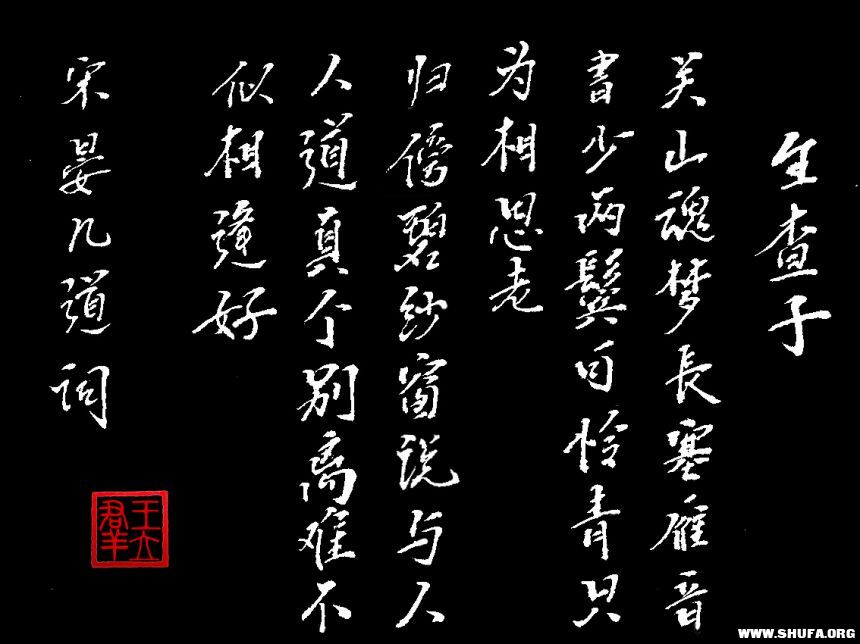 生查子
关山魂梦長塞雁音
書少两鬓可怜青只
为相思老
归傍碧纱窗说与人
人道真个别离难不
似相逢好
宋晏几道词
王立群
WWW.SHUFA.ORG